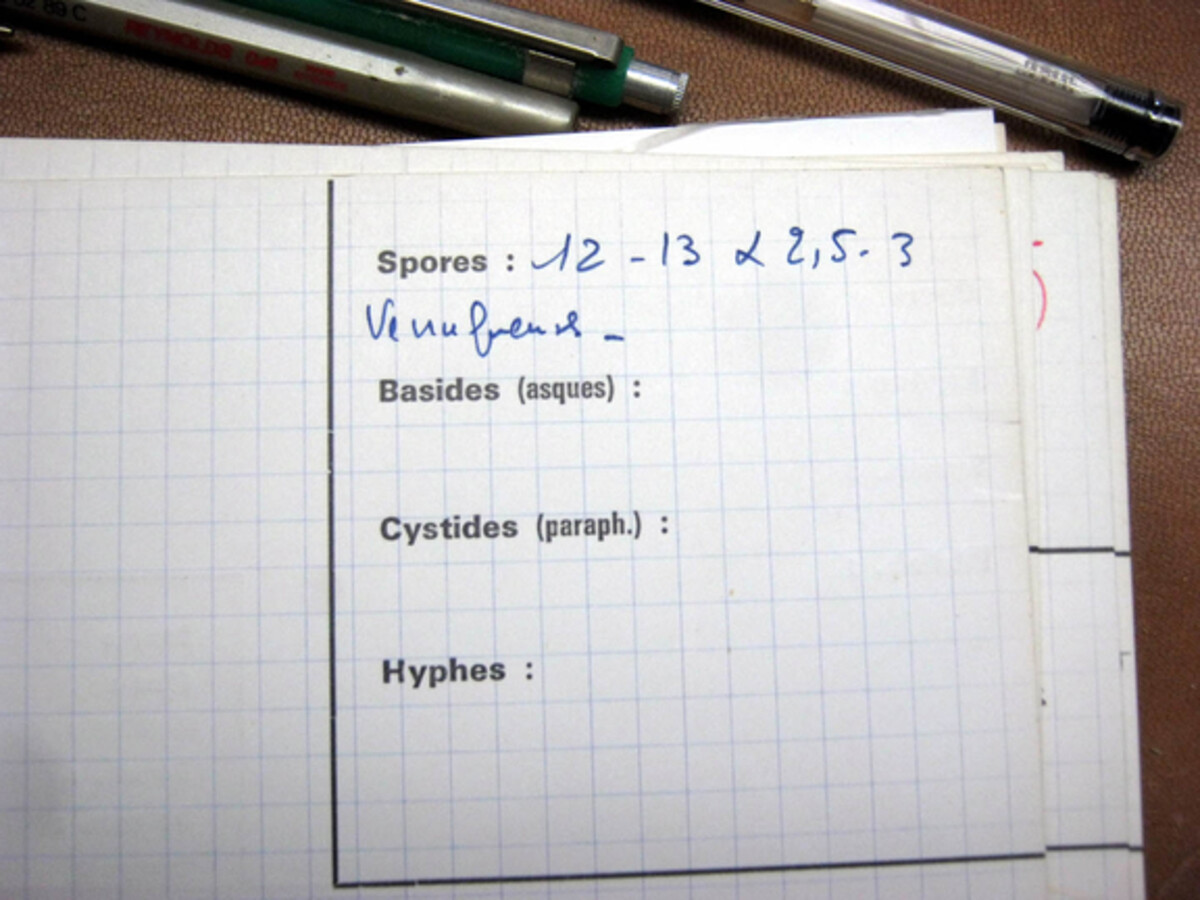 02 89 C
REYNOLDS
Spores : 12 - 13 x 2,5 - 3
Basides (asques) :
Cystides (paraph.) :
Hyphes :